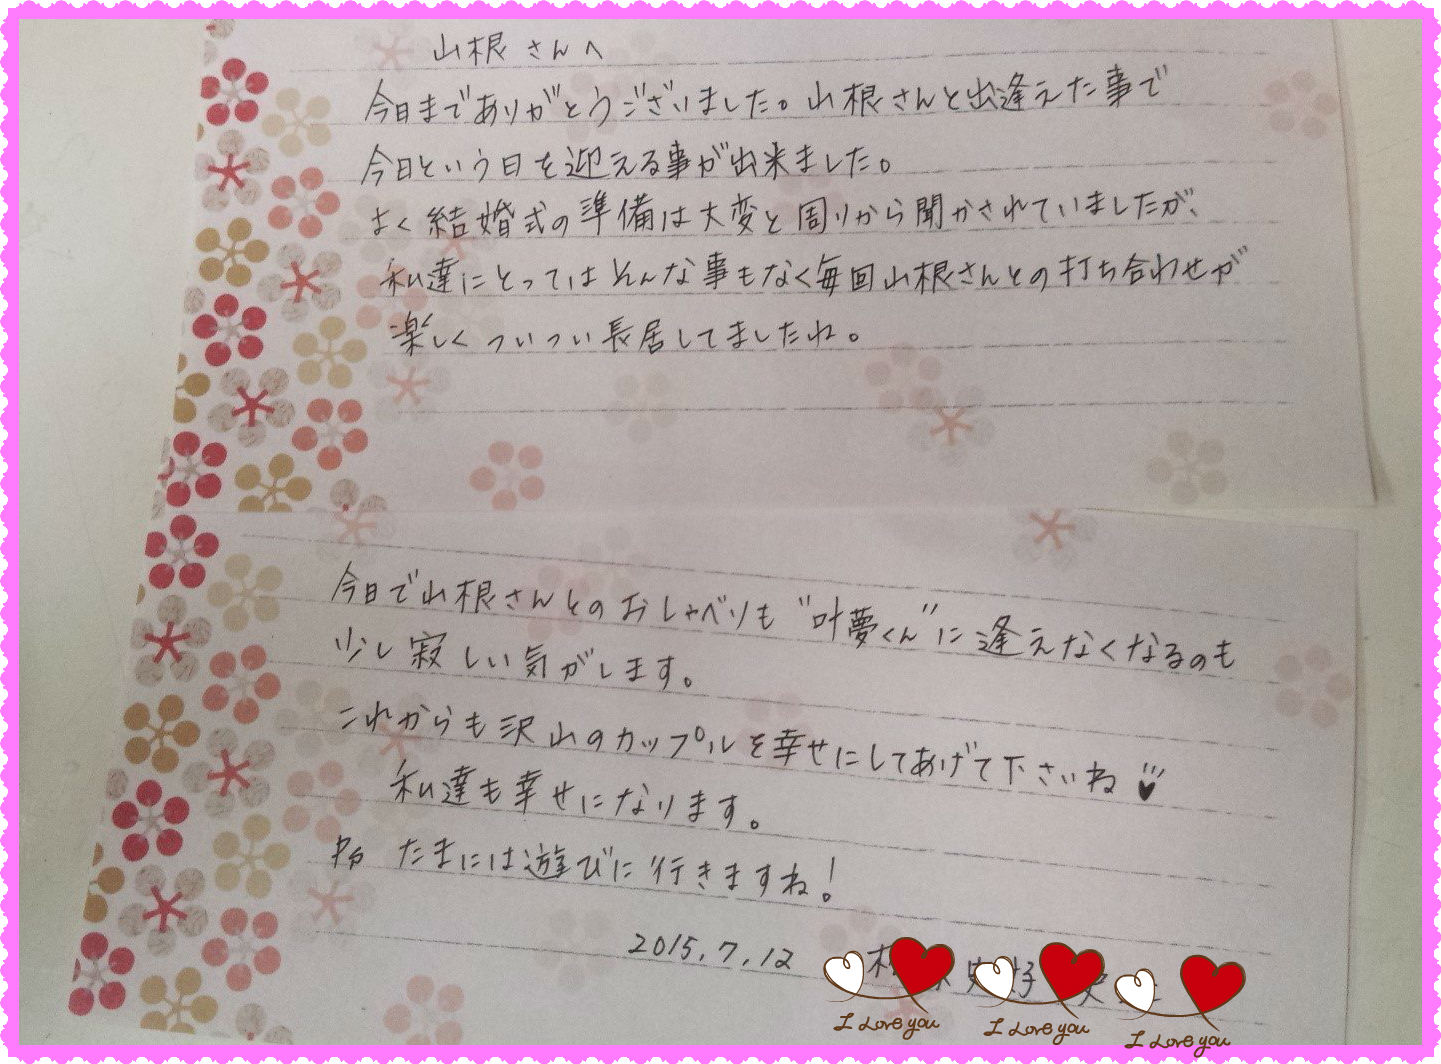 山根さんへ
今日までありがとうございました。山根さんと出逢えた事で
今日という日を迎える事が出来ました。
よく結婚式の準備は大変と周りから聞かされていましたが、
私達にとってはそんな事もなく毎回山根さんとの打ち合わせが
楽しくついつい長居してましたね。
今日で山根さんとのおしゃべりも“叶夢くん”に逢えなくなるのも
少し寂しい気がします。
これからも沢山のカップルを幸せにしてあげて下さいね
私達も幸せになります。
たまには遊びに行きますね！
2015.7.12
I Love you
I Love you
I Love you